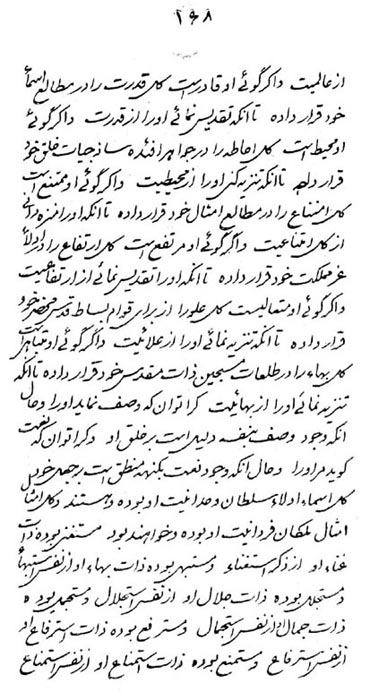 ۱۶۸
از عالمیت واگر گوئی او قادر است کل قدرت را در مطالع اسماء
خود قرار داده تا آنکه تقدیس نمائی او را از قدرت واگر گوئی
او محیط است کل احاطه را در جواهر افئده ساذجیات خلق خود
قرار داده تا آنکه تنزیه کنی او را از محیطیت واگر گوئی او ممتنع است
کل امتناع را در مطالع امثال خود قرار داده تا آنکه او را منزه دانی
از کل امتناعیت واگر گوئی او مرتفع است کل ارتفاع را در ادلاء
عز مملکت خود قرار داده تا آنکه او را تقدیس نمائی از ارتفاعیت
واگر گوئی او متعالیست کل علو را از برای قوام بساط قدس حضرت خود
قرار داده تا آنکه تنزیه نمائی او را از علائیت واگر گوئی او متباهی است
کل بهاء را در طلعات مسبحین ذات مقدس خود قرار داده تا آنکه
تنزیه نمائی او را از بهائیت کرا توان که وصف نماید او را وحال
آنکه وجود وصف بنفسه دلیل است بر خلق او وکرا توان که نعت
گوید مر او را وحال آنکه وجود نعت بکنهه منطق است بر جعل خود
کل اسماء ادلاء سلطان وحدانیت او بوده وهستند وکل امثال
امثال ملکان فردانیت او بوده وخواهند بود مستغنی بوده ذات
غناء او از ذکر استغناء ومستبهی بوده ذات بهاء او از نفس استبهاء
ومستجلل بوده ذات جلال او از نفس استجلال ومستجمل بوده
ذات جمال از نفس استجمال ومسترفع بوده ذات استرفاع او
از نفس استرفاع ومستمنع بوده ذات استمناع او از نفس استمناع